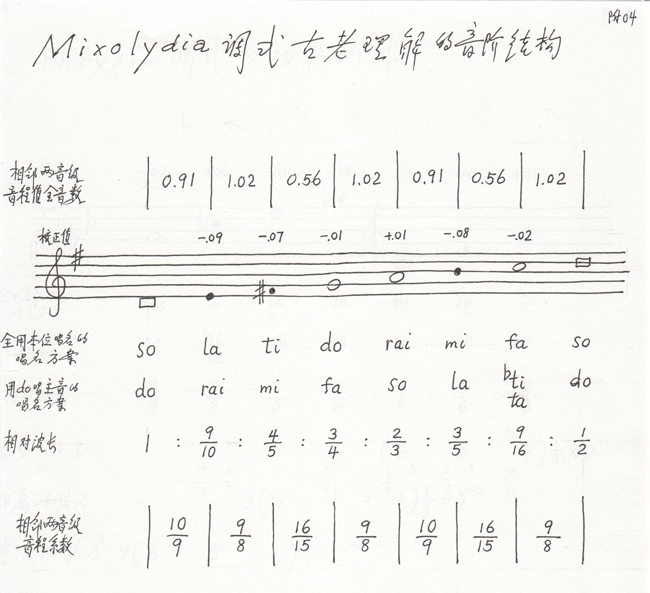 PA04
Mixolydia 调式古老理解的音阶结构
相邻两音级 音程值全音数 | 0.91 | 1.02 | 0.56 | 1.02 | 0.91 | 0.56 | 1.02 |
校正值 -.09 -.07 -.01 +.01 -.08 -.02
全用本位唱名的唱名方案 so la ti do rai mi fa so
用do唱主音的唱名方案 do rai mi fa so la ♭ti do
ta
相对波长 1 : 9/10 : 4/5 : 3/4 : 2/3 : 3/5 : 9/16 : 1/2
相邻两音级 音程系数 | 10/9 | 9/8 | 16/15 | 9/8 | 10/9 | 16/15 | 9/8 |